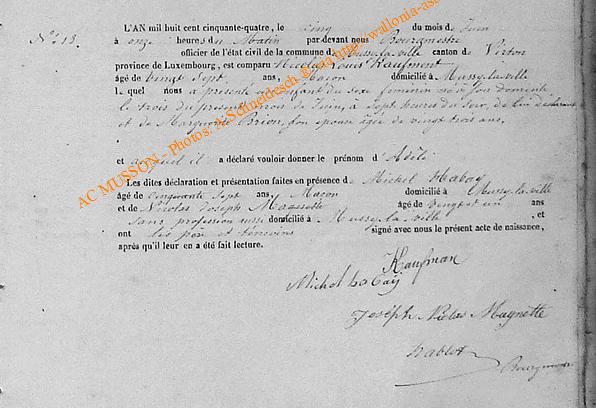 N° 13.
L'AN mil huit cent cinquante-quatre, le cinq du mois de Juin
à onze heures du Matin par devant nous Bourgmestre
officier de l'état civil de la commune de Mussy-la-ville canton de Virton
province de Luxembourg, est comparu Nicolas Louis Kaufman
âgé de vingt sept ans, Maçon domicilié à Mussy-la-ville
le quel nous a présenté un enfant du sexe féminin né à son domicile
le trois du présent mois de Juin, à sept heures du Soir, de lui déclarant
et de Marguerite Brion, son épouse âgée de vingt trois ans,
et auquel il a déclaré vouloir donner le prénom d'Adèle
Les dites déclaration et présentation faites en présence de Michel
âgé de cinquante sept ans, Maçon domicilié à Mussy-la-ville
et de Nicolas Joseph âgé de vingt et un ans
sans profession aussi domicilié à Mussy-la-ville, et
ont les père et témoins signé avec nous le présent acte de naissance,
après qu'il leur en a été fait lecture.
Kaufman
Michel
Joseph Nicolas Magnette
Bourgmestre
AC MUSSON - Photos: A.Schneidesch © via http://wallonia-as